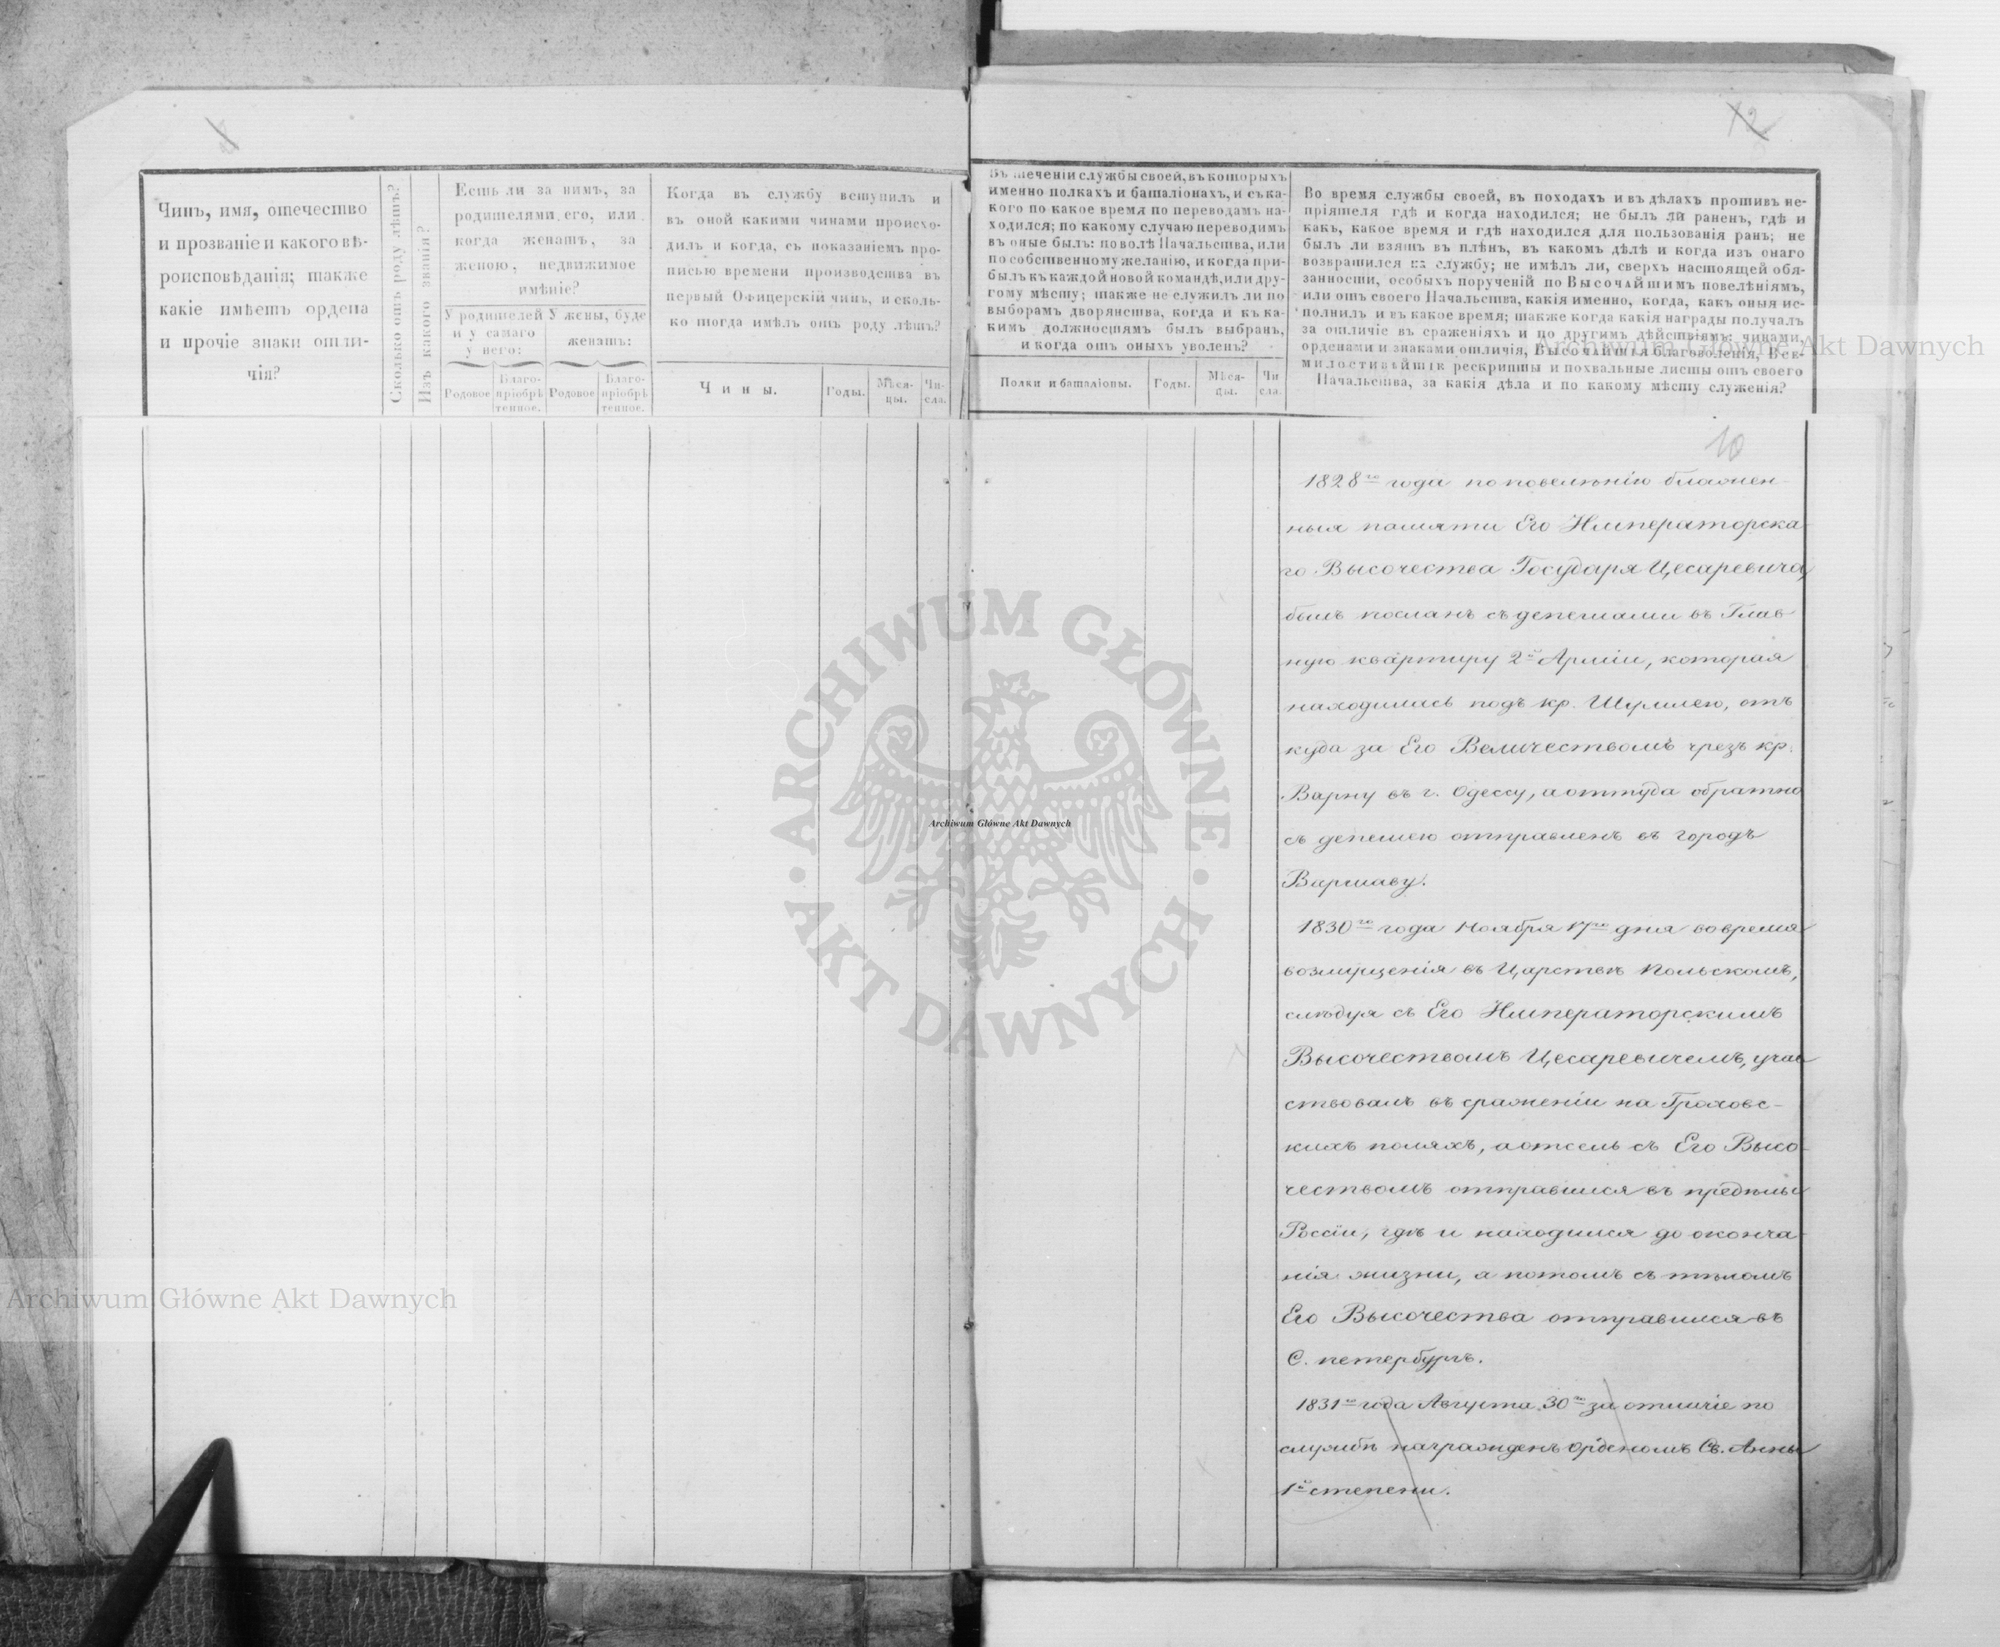 Чинъ, имя, отечество
и прозваніе и какого вѣ-
роисповѣданія; также
какіе имѣетъ ордена
и прочіе знаки отли-
чія?
Сколько отъ роду лѣтъ?
Изъ какого званія?
Есть ли за нимъ, за
родителями его, или
когда женатъ, за
женою, недвижимое
имѣніе?
У родителей
и у самаго
у него:
У жены, буде
женатъ:
Родовое
Благо-
пріобрѣ
тенное.
Родовое
Благо-
пріобрѣ
тенное.
Когда въ службу вступилъ и
въ оной какими чинами происхо-
дилъ и когда, съ показаніемъ про-
писью времени производства въ
первый Офицерскій чинъ, и сколь-
ко тогда имѣлъ отъ роду лѣтъ?
Чины.
Годы.
Мѣся-
цы.
Чи-
сла.
Въ теченіи службы своей, въ которыхъ
именно полкахъ и баталіонахъ, и съ ка-
кого по какое время по переводамъ на-
ходился; по какому случаю переводимъ
въ оные былъ: по волѣ Начальства, или
по собственному желанію, и когда при-
былъ къ каждой новой командѣ, или дру-
гому мѣсту; также не служилъ ли по
выборамъ дворянства, когда и къ ка-
кимъ должностямъ былъ выбранъ,
и когда отъ оныхъ уволенъ?
Полки и баталіоны.
Годы.
Мѣся-
цы.
Чи
сла.
Во время службы своей, въ походахъ и въ дѣлахъ противъ не-
пріятеля гдѣ и когда находился; не былъ ли раненъ, гдѣ и
какъ, какое время и гдѣ находился для пользованія ранъ; не
былъ ли взятъ въ плѣнъ, въ какомъ дѣлѣ и когда изъ онаго
возвратился на службу; не имѣлъ ли, сверхъ настоящей обя-
занности, особыхъ порученій по Высочайшимъ повелѣніямъ,
или отъ своего Начальства, какія именно, когда, какъ оныя ис-
полнилъ и въ какое время; также когда какія награды получалъ
за отличіе въ сраженіяхъ и по другимъ дѣйствіямъ: чинами,
орденами и знаками отличія, Высочайшія благоволенія, Все-
милостивѣйшіе рескрипты и похвальные листы отъ своего
Начальства, за какія дѣла и по какому мѣсту служенія?
12
10
1828го года по повелѣнію блажен-
ныя памяти Его Императорска-
го Высочества Государя Цесаревича,
былъ посланъ съ депешами въ Глав-
ную квартиру 2й Арміи, которая
находилась подъ кр. Шумлею, отъ
куда за Его Величествомъ чрезъ кр.
Варну въ г. Одессу, а оттуда обратно
съ депешею отправленъ въ городъ
Варшаву.
1830го года Ноября 17го дня во время
возмущенія въ Царствѣ Польскомъ,
слѣдуя съ Его Императорскимъ
Высочествомъ Цесаревичемъ, учав
ствовалъ въ сраженіи на Гроховс-
кихъ поляхъ, а отсель съ Его Высо-
чествомъ отправился въ предѣлы
Россіи, гдѣ и находился до оконча-
нія жизни, а потомъ съ тѣломъ
Его Высочества отправился въ
С. петербургъ.
1831го года Августа 30го за отличіе по
службѣ награжденъ орденомъ Св. Анны
1й степени.
Archiwum Główne Akt Dawnych
Archiwum Główne Akt Dawnych
Archiwum Główne Akt Dawnych
ARCHIWUM GŁÓWNE
AKT DAWNYCH